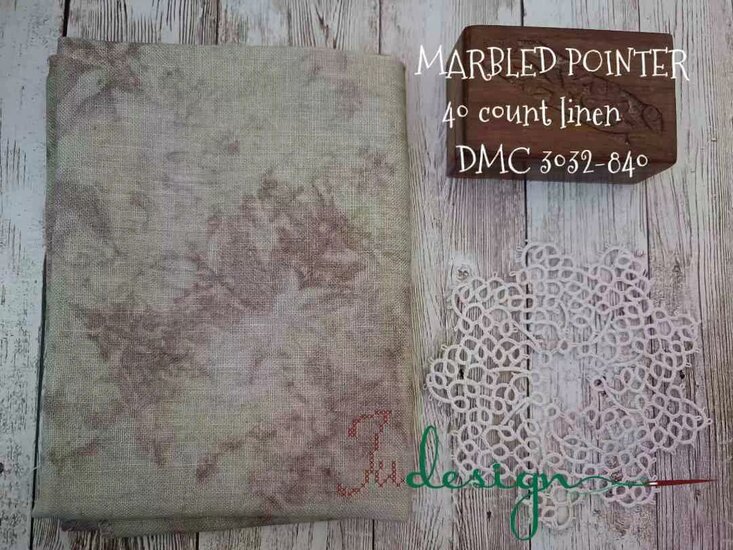 MARBLED POINTER
40 count linen
DMC 3032-840
Judesign